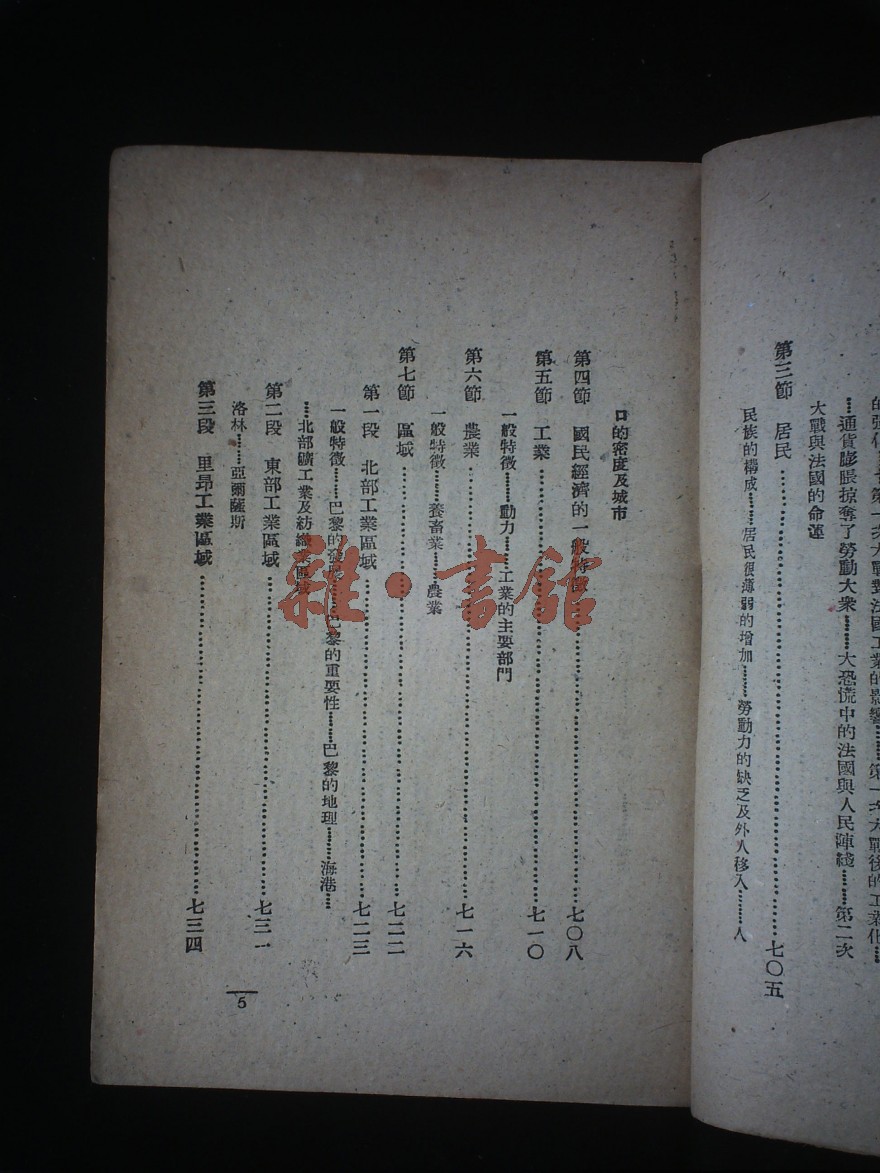 通貨膨脹掠奪了勞動大衆………大恐慌中的法國與人民陣綫………第二次
大戰與法國的命運
第三節 居民……七〇五
民族的構成………居民很薄弱的增加………勞動力的缺乏及外人移入………人
口的密度及城市
第四節 國民經濟的一般特徵……七〇八
第五節 工業……七一〇
一般特徵………動力………工業的主要部門
第六節 農業……七一六
一般特徵………養畜業………農業
第七節 區域……七二二
第一段 北部工業區域……七二三
一般特徵………巴黎的發展………巴黎的重要性………巴黎的地理………海港……
……北部礦工業及紡織業區域
第二段 東部工業區域……七三一
洛林………亞爾薩斯
第三段 里昂工業區域……七三四
5
雜·書館